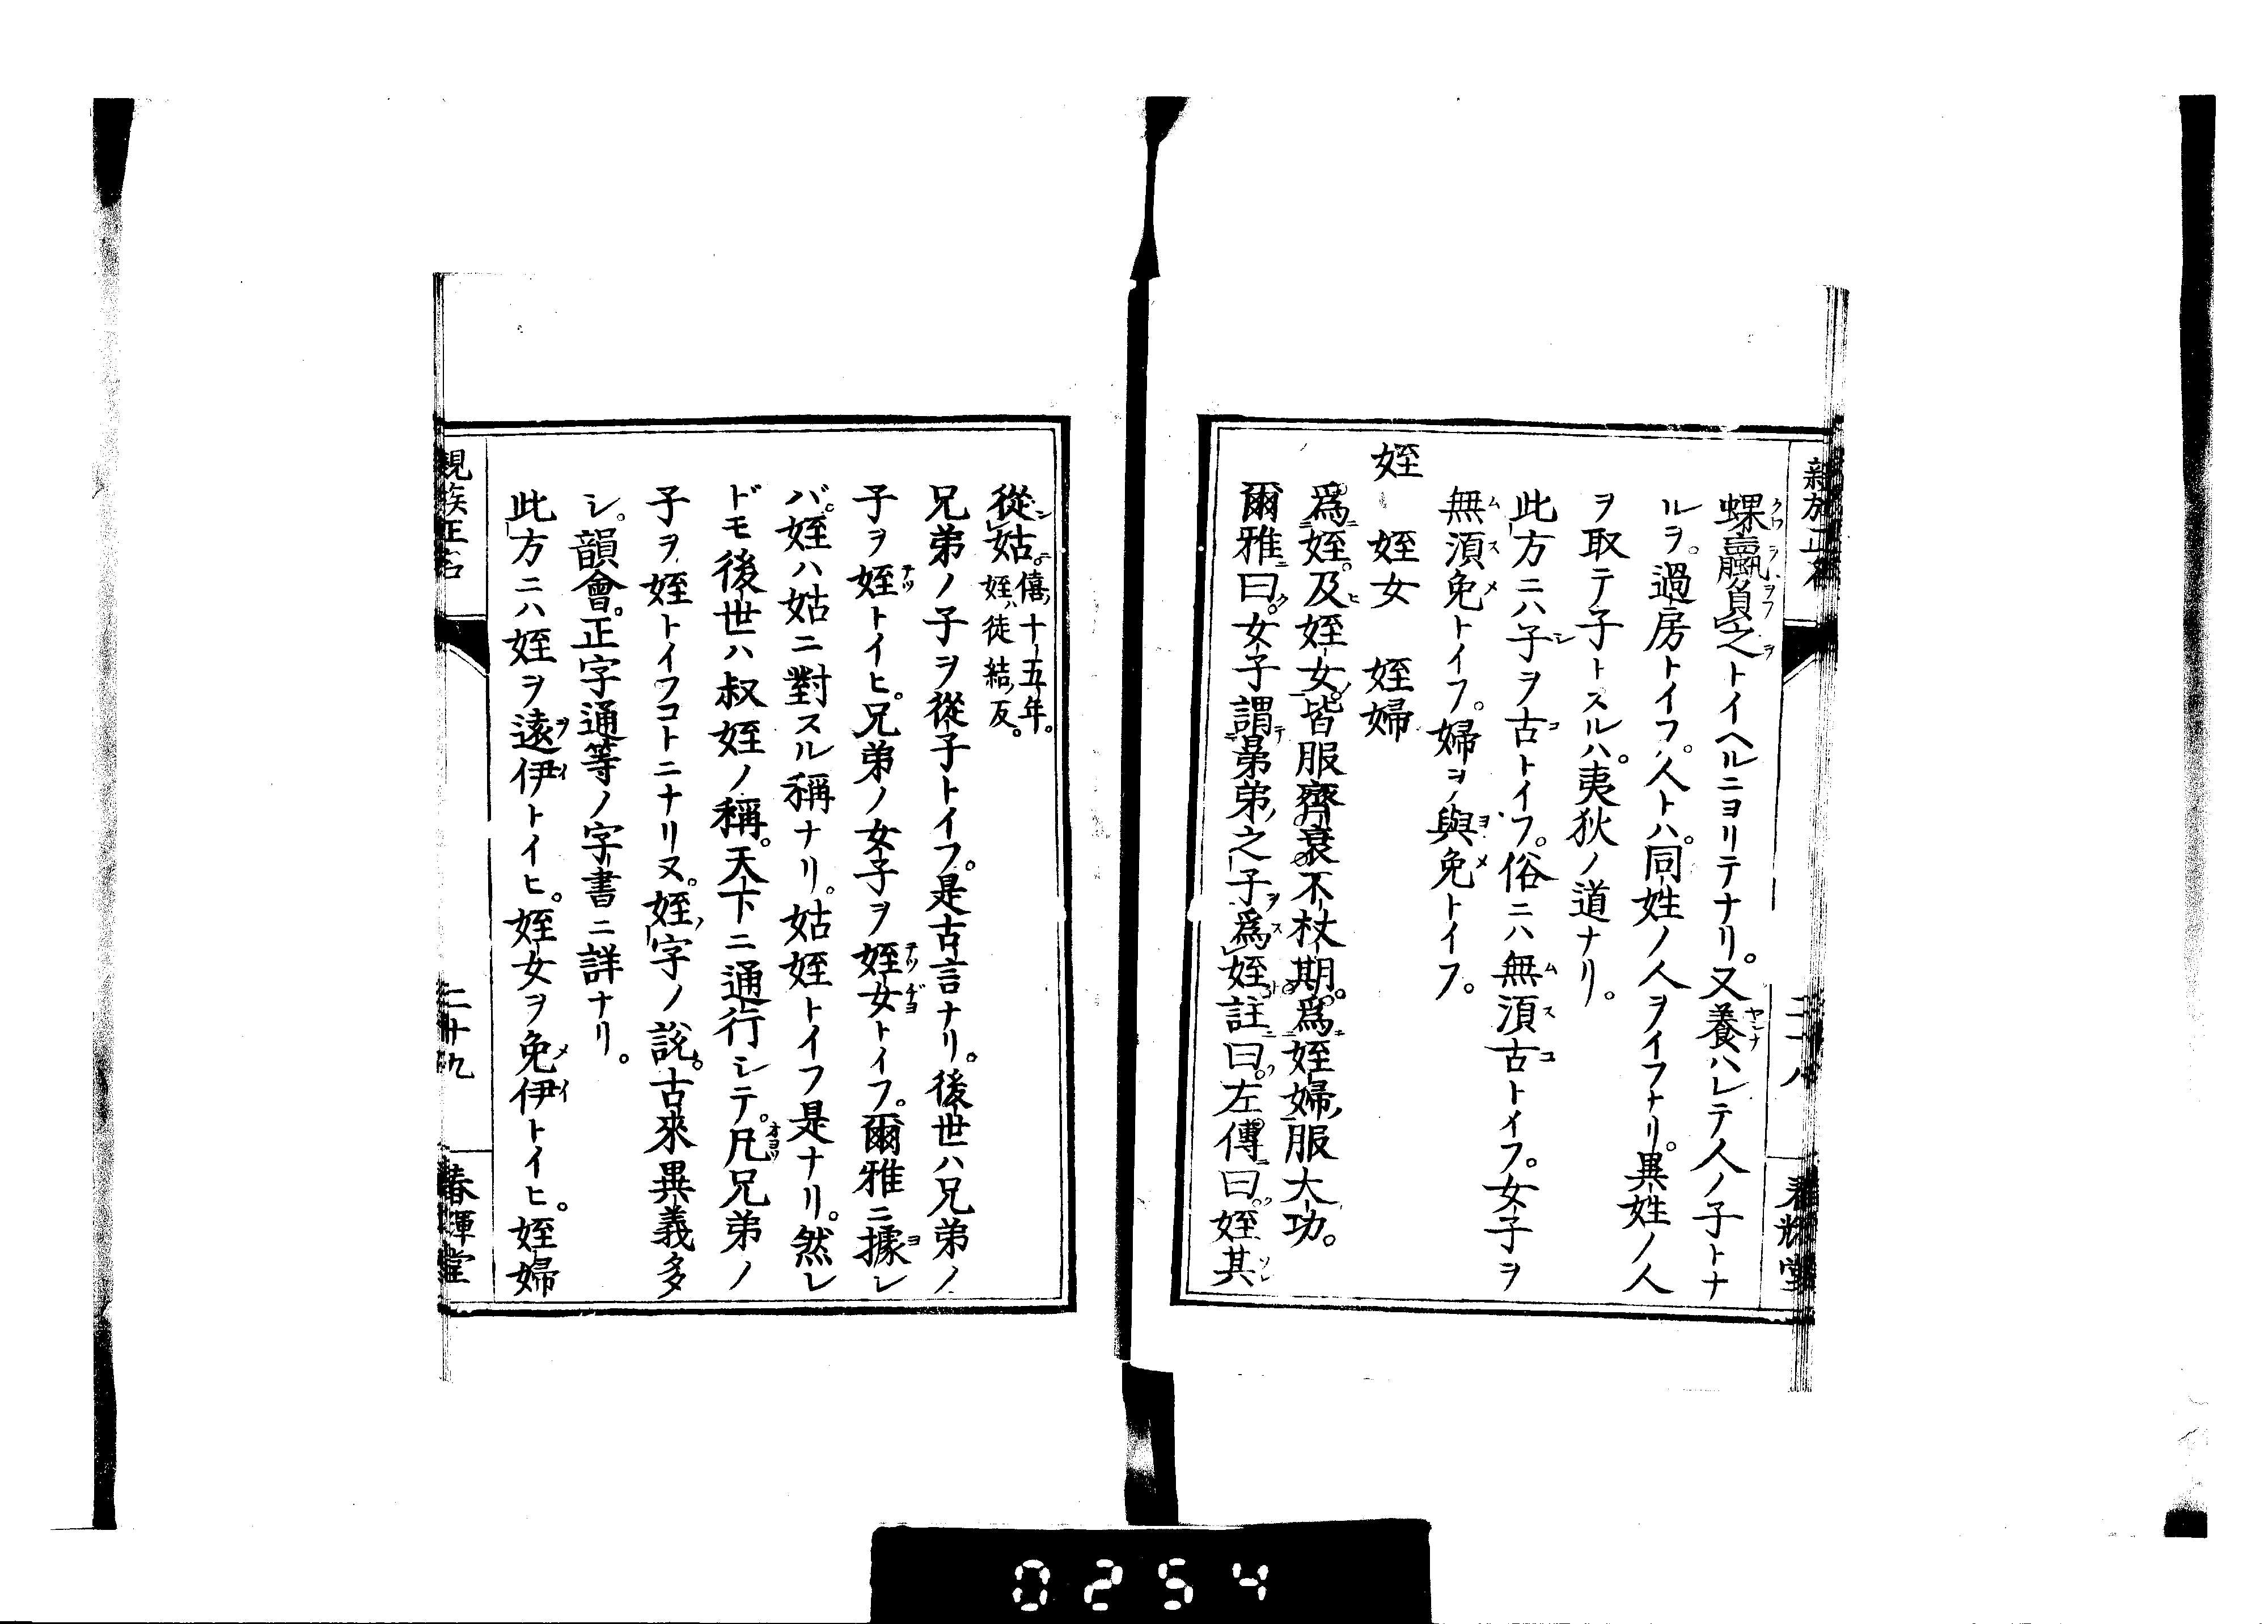 蜾蠃負之トイヘルニヨリテナリ。又養ハレテ人ノ子トナ
ルヲ。過房トイフ。人トハ。同姓ノ人ヲイフナリ。異姓ノ人
ヲ取テ子トスルハ。夷狄ノ道ナリ。
此方ニハ子ヲ古トイフ。俗ニハ無須古トイフ。女子ヲ
無須免トイフ。婦ヲ與免トイフ。
姪 姪女 姪婦
爲姪。及姪女。皆服齊衰不杖期。爲姪婦服大功。
爾雅曰。女子謂晜弟之子爲姪註曰。左傳曰。姪其
從姑。僖十五年。
姪徒結反。
兄弟ノ子ヲ從子トイフ。是古言ナリ。後世ハ兄弟ノ
子ヲ姪トイヒ。兄弟ノ女子ヲ姪女トイフ。爾雅ニ據レ
バ。姪ハ姑ニ對スル稱ナリ。姑姪トイフ是ナリ。然レ
ドモ後世ハ叔姪ノ稱。天下ニ通行シテ。凡兄弟ノ
子ヲ姪トイフコトニナリヌ。姪字ノ說。古來異義多
シ。韻會。正字通等ノ字書ニ詳ナリ。
此方ニハ姪ヲ遠伊トイヒ。姪女ヲ免伊トイヒ。姪婦
親族正名
二十九
春暉堂
0254